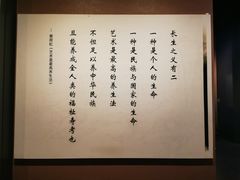 长生之义有二
一种是个人的生命
一种是民族与国家的生命
艺术是最高的养生法
不但足以养中华民族
且能养成全人类的福祉寿考也
黄宾虹